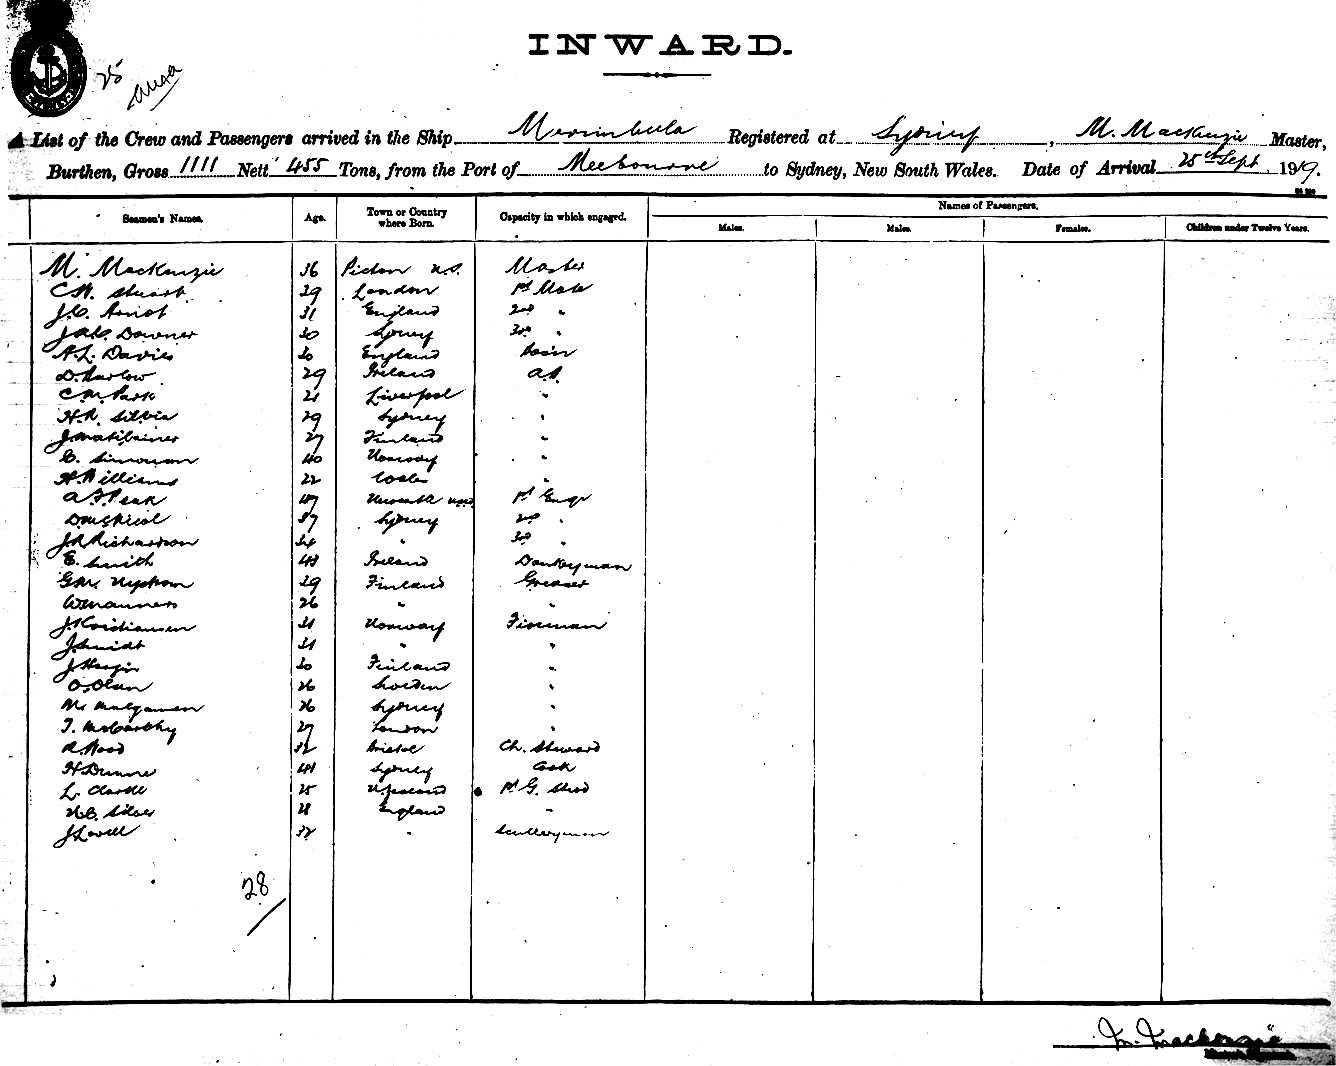 INWARD.
25
A List of the Crew and Passengers arrived in the Ship Merimbula Registered at Sydney, M. MacKenzie Master,
Burthen, Gross 1111 Nett 455 Tons, from the Port of Melbourne to Sydney, New South Wales. Date of Arrival 25th Sept 1919.
Seamen's Names. Age. Town or Country where Born. Capacity in which engaged. Names of Passengers.
Males. Males. Females. Children under Twelve Years.
M. MacKenzie 36 Picton N.S. Master
C.W. Stuart 39 London 1st Mate
J.C. Arnot 31 England 2nd "
Downer 30 Sydney 3rd "
A.L. Davies 30 England Bosn
D. Harlow 29 Ireland A.B.
C.M. Park 21 Liverpool "
H.R. Silvia 29 Sydney "
27 Finland "
C. Simonson 40 Norway "
H. Williams 22 Wales "
A.F. Peak 47 Newcastle 1st Engr
37 Sydney 2nd "
J.R. Richardson 34 " 3rd "
E. Smith 43 Ireland Donkeyman
39 Finland Greaser
W. Manners 26 " "
J. Kristiansen 31 Norway Fireman
J. Smidt 31 " "
30 Finland "
O. Olsen 26 Sweden "
26 Sydney "
T. McCarthy 27 London "
R. Wood 32 Bristol Ch. Steward
H. Dunne 41 Sydney Cook
L. Clarke 25 N Zealand 1st G. Stwd
28 England "
J. Lovell 32 " Sculleryman
28
M. Mackenzie